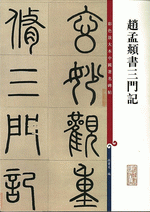 趙孟頫書三門記
彩色放大本中國著名碑帖
玄妙觀重
脩三門記